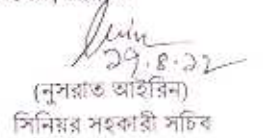 ২৯.৪.২২
(নুসরাত আইরিন)
সিনিয়র সহকারী সচিব